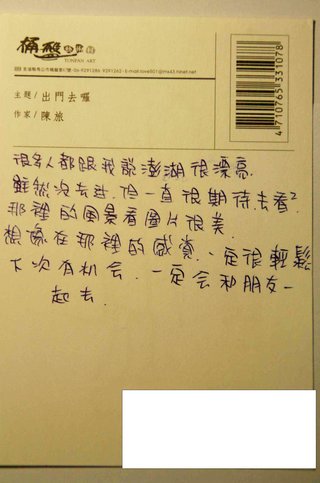 桶盤藝術村
TONPAN ART
主題/出門去囉
作家/陳旅
4710765331078
很多人都跟我說澎湖很漂亮.
雖然沒去過.但一直很期待去看2
那裡的風景看圖片很美.
想像在那裡的感覺.一定很輕鬆.
下次有机会.一定会和朋友一
起去.